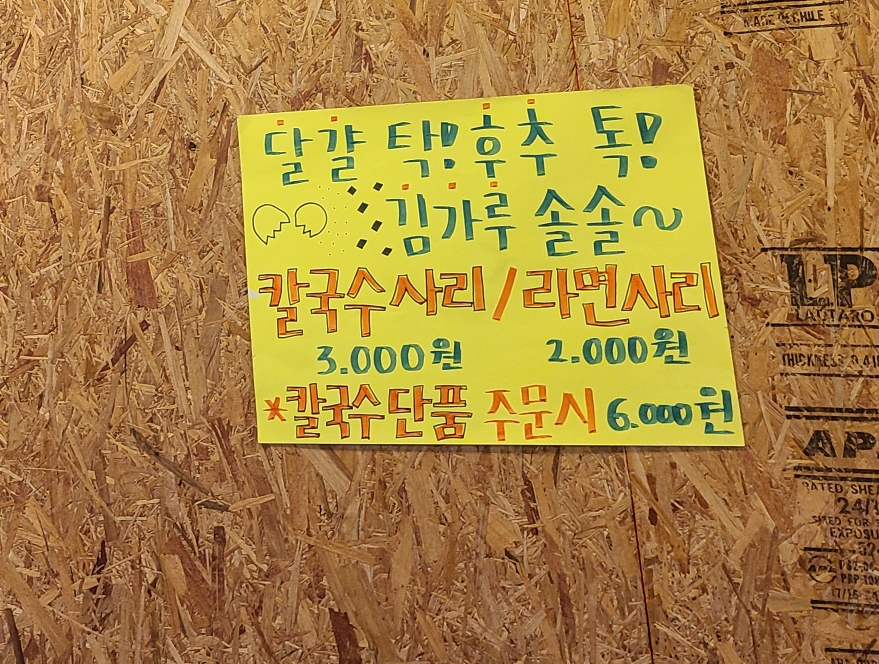 MADE IN CHILE
달걀 탁! 후추 톡!
김가루 솔솔~
칼국수사리/라면사리
3.000원 2.000원
*칼국수단품 주문시 6.000원
LP
LAUTARO
THICKNESS 0.4
AP
RATED SHE
24/
SIZED FOR
EXPOSU